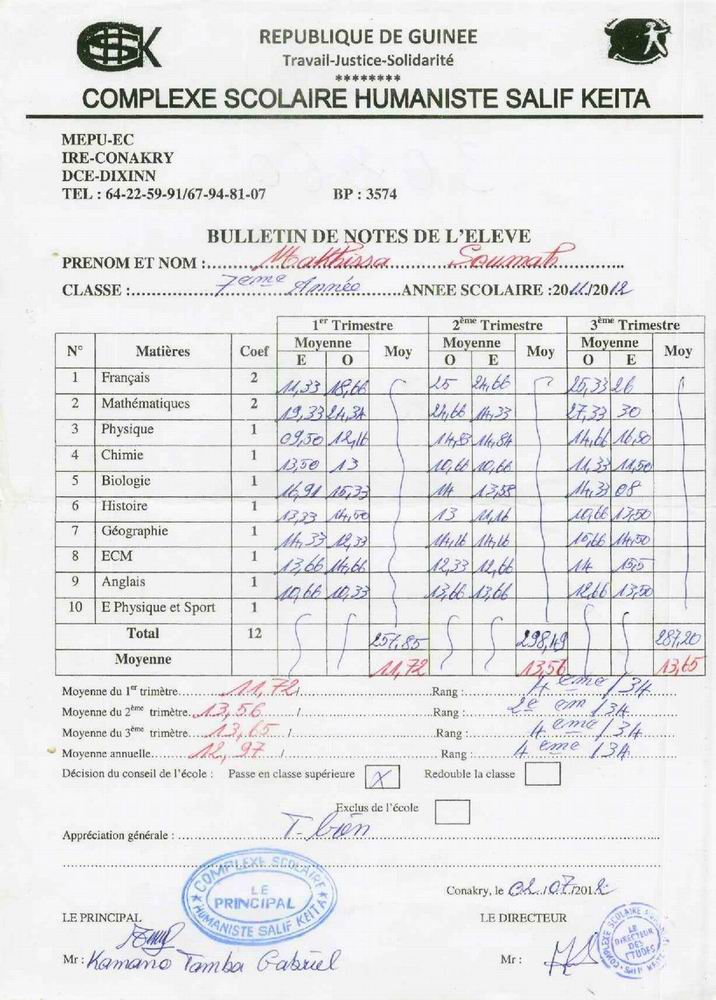 REPUBLIQUE DE GUINEE
Travail-Justice-Solidarité
********
COMPLEXE SCOLAIRE HUMANISTE SALIF KEITA
MEPU-EC
IRE-CONAKRY
DCE-DIXINN
TEL : 64-22-59-91/67-94-81-07 BP : 3574
BULLETIN DE NOTES DE L'ELEVE
PRENOM ET NOM : Makhissa Soumah
CLASSE : 7eme Année ANNEE SCOLAIRE :2011/2012
1er Trimestre 2ème Trimestre 3ème Trimestre
N° Matières Coef Moyenne Moy Moyenne Moy Moyenne Moy
E O O E O E
1 Français 2 11,33 18,66 25 24,66 25,33 26
2 Mathématiques 2 19,33 24,34 24,66 14,33 27,33 30
3 Physique 1 09,50 12,16 14,83 14,84 14,66 16,50
4 Chimie 1 13,50 13 10,66 10,66 11,33 11,50
5 Biologie 1 16,91 15,33 14 13,58 14,33 08
6 Histoire 1 13,33 14,50 13 11,16 10,66 13,50
7 Géographie 1 14,33 12,33 14,16 14,16 15,66 14,50
8 ECM 1 13,66 14,66 12,33 12,66 14 15,5
9 Anglais 1 10,66 10,33 13,66 13,66 12,66 13,50
10 E Physique et Sport 1
Total 12 257,85 298,49 287,20
Moyenne 11,72 13,56 13,65
Moyenne du 1er trimètre 11,72 / Rang : 4 eme / 34
Moyenne du 2ème trimètre 13,56 / Rang : 2e em / 34
Moyenne du 3ème trimètre 13,65 / Rang : 4 eme / 34
Moyenne annuelle 12,97 / Rang : 4 eme / 34
Décision du conseil de l'école : Passe en classe supérieure X Redouble la classe
Exclus de l'école
Appréciation générale : T. bien
COMPLEXE SCOLAIRE
LE PRINCIPAL
HUMANISTE SALIF KEITA
Conakry, le 02/07/2012
LE PRINCIPAL LE DIRECTEUR
COMPLEXE SCOLAIRE
LE DIRECTEUR DES ETUDES
SALIF KEITA
Mr : Kamano Tamba Gabriel Mr :